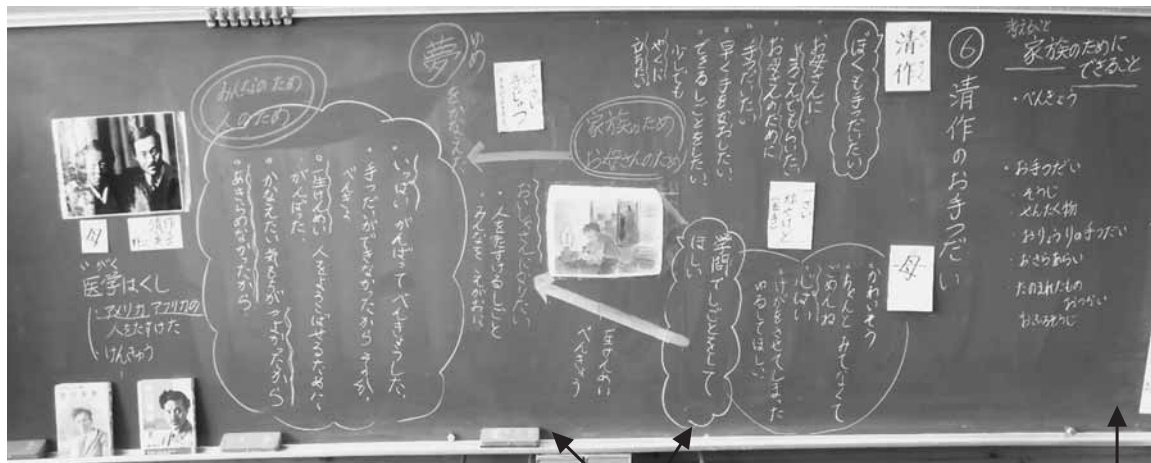 考えること
家族のために
できること
・べんきょう
・お手つだい
・そうじ
・せんたく物
・おりょうりの手つだい
・おさらあらい
・たのまれたもの
おつかい
おふろそうじ
⑥ 清作のお手つだい
清作
ぼくも手つだいたい
お母さんに
よろこんでもらいたい
お母さんのために
手つだいたい
・早く手をなおしたい
・できるしごとをしたい
・少しでも
やくに
立ちたい
母
・かわいそう
・ちゃんとみてなくて
ごめんね
・しんぱい
・けがをさせてしまった
ゆるしてほしい
学問でしごとをして
ほしい
一生けんめい
べんきょう
家族のため
お母さんのため
おいしゃさんになりたい
・人をたすけるしごと
・みんなを えがおに
ゆめ
夢をかなえた
みんなのため
人のため
・いっぱいがんばってべんきょうした。
・手つだいができなかったから そのか
べんきょう
・一生けんめい 人をよろこばせるために
がんばった。
・かなえたい気もちがつよかったから
・あきらめなかったから
母
いがく
医学はくし
・アメリカ アフリカの
人をたすけた
・けんきゅう